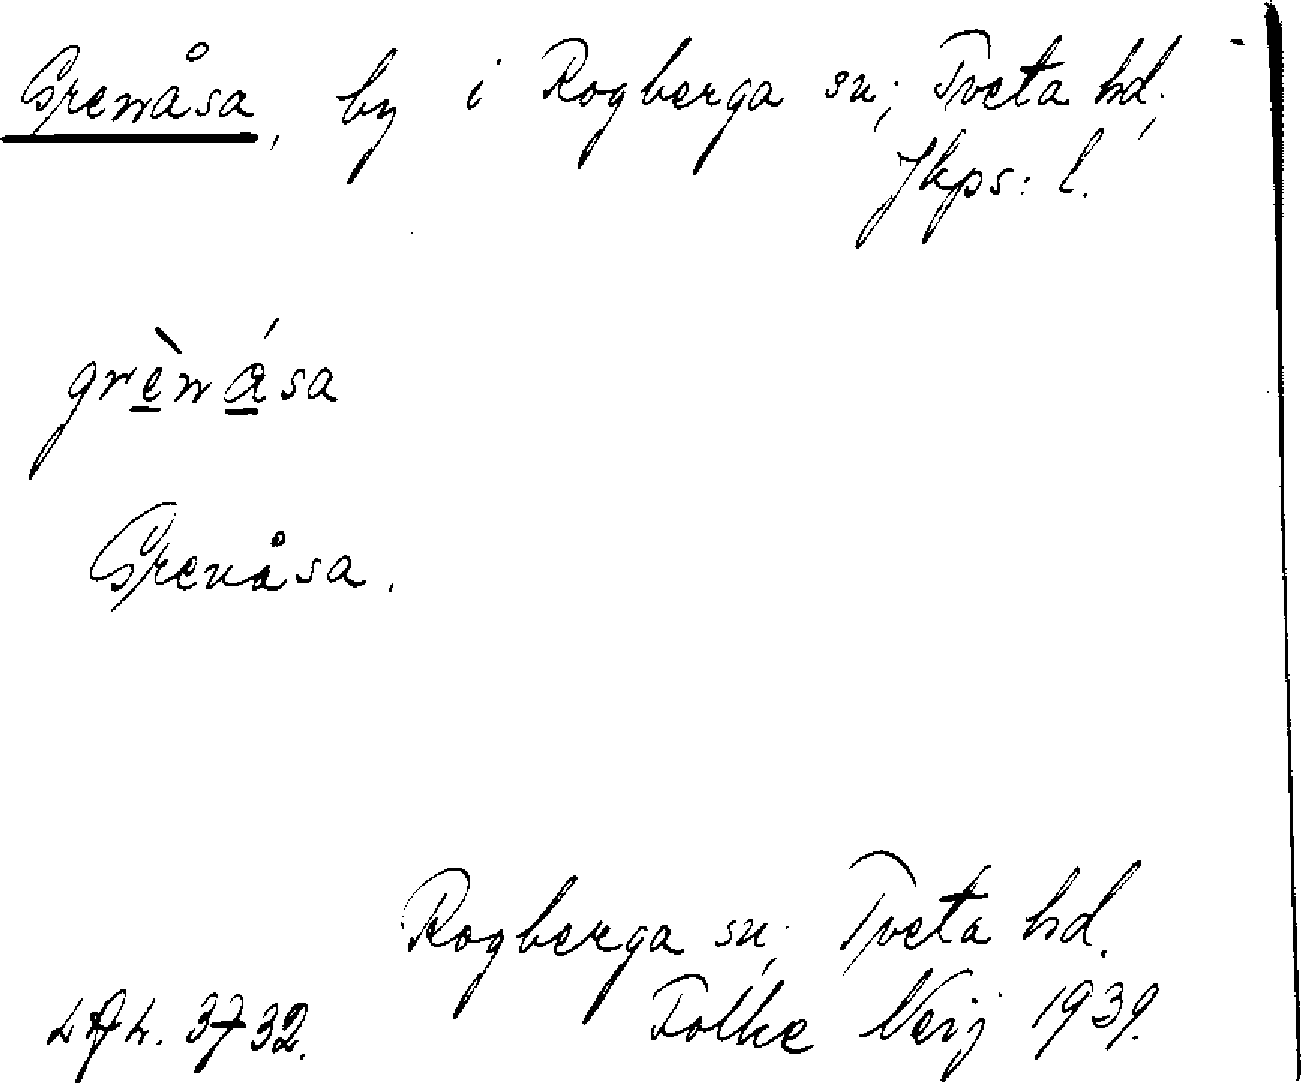 Grenåsa, by i Rogberga sn; Tveta hd;
Jkps: l.
grènása
Grenåsa.
Rogberga sn; Tveta hd.
Folke Neij 1939.
3732.